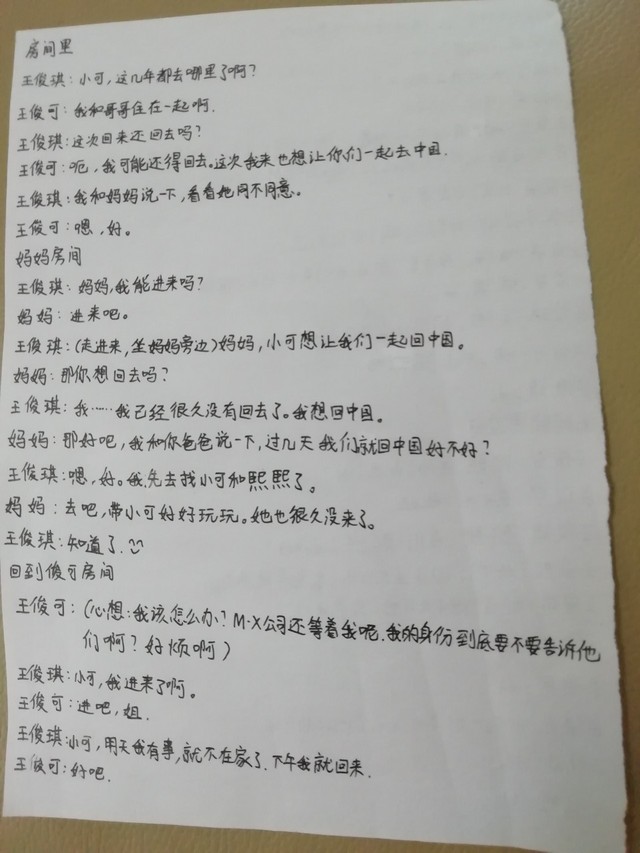 房间里
王俊琪：小可，这几年都去哪里了啊？
王俊可：我和哥哥住在一起啊.
王俊琪：这次回来还回去吗？
王俊可：呃，我可能还得回去。这次我来也想让你们一起去中国.
王俊琪：我和妈妈说一下，看看她同不同意。
王俊可：嗯，好。
妈妈房间
王俊琪：妈妈，我能进来吗？
妈妈：进来吧。
王俊琪：(走进来，坐妈妈旁边)妈妈，小可想让我们一起回中国。
妈妈：那你想回去吗？
王俊琪：我……我已经很久没有回去了。我想回中国.
妈妈：那好吧，我和你爸爸说一下，过几天我们就回中国好不好？
王俊琪：嗯，好。我先去找小可和熙熙了。
妈妈：去吧，带小可好好玩玩。她也很久没来了。
王俊琪：知道了.
回到俊可房间
王俊可：(心想：我该怎么办？M·X公司还等着我呢.我的身份到底要不要告诉他
们啊？好烦啊)
王俊琪：小可，我进来了啊。
王俊可：进吧，姐.
王俊琪：小可，用天我有事，就不在家了.下午我就回来.
王俊可：好吧.